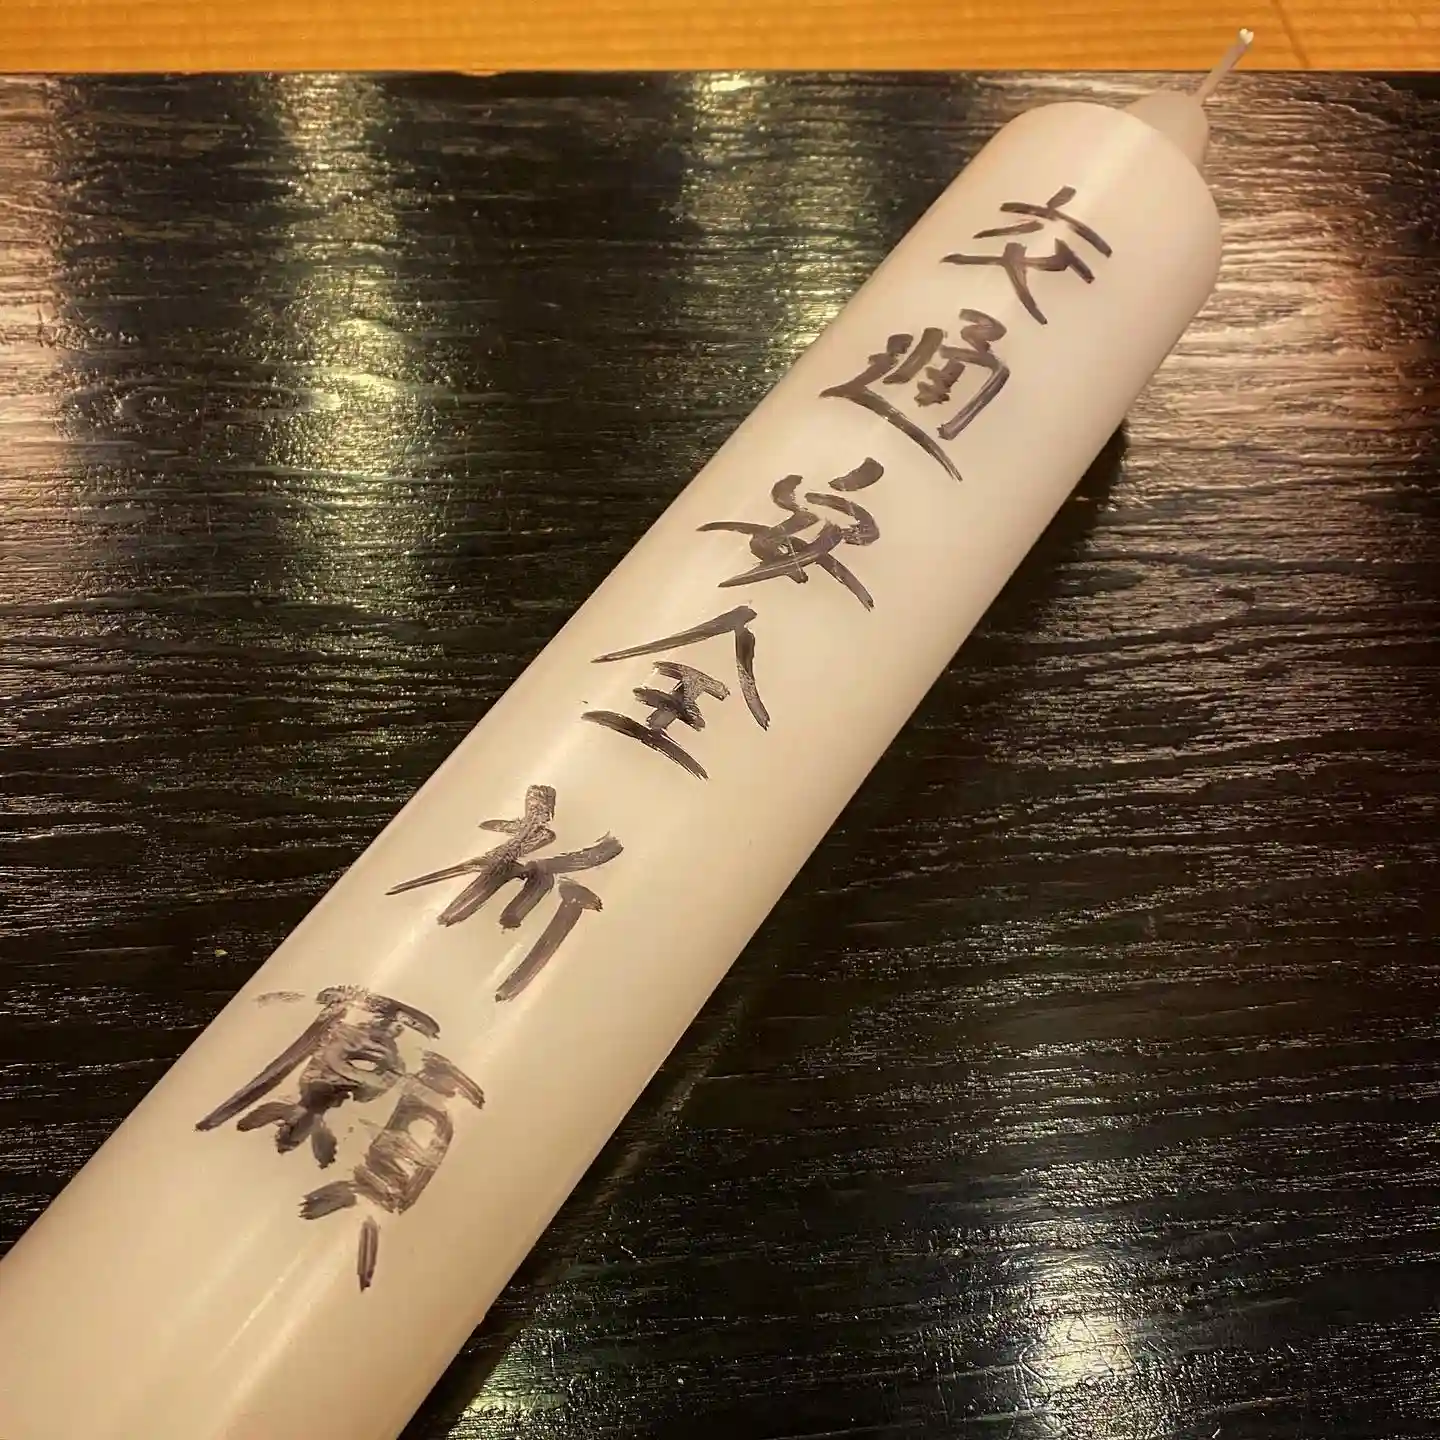 交通安全祈願